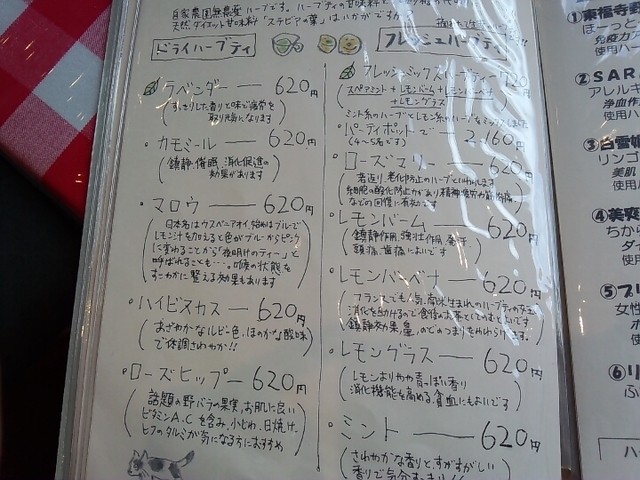 自家農園無農薬ハーブです。
天然ダイエット甘味料"ステビアの葉"はいかがですか
ドライハーブティ
ラベンダー — 620円
(すっきりした香りと味で疲労を
取り去ることになります
・カモミール — 620円
(鎮静、催眠、消化促進の
効果があります)
・マロウ — 620円
(日本名はウスベニアオイ、始めはブルーで
レモン汁を加えると色がブルーからピンク
に変わることから「夜明けのティー」と
呼ばれることも…。喉の状態を
すこやかに整える効果もあります)
・ハイビスカス — 620円
(あざやかなルビー色、ほのかな酸味
で体調さわやか!!)
・ローズヒップ — 620円
(話題の野バラの果実、お肌に良い
ビタミンA.Cを含み、小じわ、日焼け、
ヒフのタルミが気になる方におすすめ)
フレッシュハーブティ
フレッシュミックスハーブティー 720円
(スペアミント+レモンバーム+レモンバーベナ
+レモングラス
ミント系のハーブとレモン系のハーブをミックス
・パーティポット 2,160円
(4〜5名です)
・ローズマリー — 620円
(若返り、老化防止のハーブといわれます
細胞の酸化防止
などの回復に有効です)
・レモンバーム — 620円
(鎮静作用、強壮作用、発汗
頭痛、歯痛によいです)
・レモンバーベナ — 620円
(フランスでも人気、南米生まれのハーブティの女王
消化を助けるので食後のお茶としてのまれています
鎮静効果、鼻、のどのつまりをやわらげます)
・レモングラス — 620円
(レモンよりやや青っぽい香り
消化機能を高める 貧血にもよいです)
・ミント — 620円
(さわやかな香りと、すがすがしい
香りで気分
①東福寺
ほーっと
免疫力
使用ハー
②SAR
アレルギ
浄血作
使用ハ
③白雪姫
リンゴ
美肌
使用ハ
④美
ちから
ダイ
使用
⑤ブリ
女性
使
⑥リ
ふ
ハー